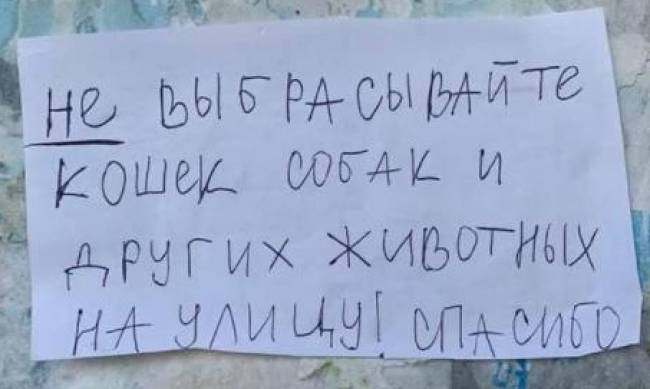 не ВЫБРАСЫВАЙТЕ
КОШЕК СОБАК И
ДРУГИХ ЖИВОТНЫХ
НА УЛИЦУ! СПАСИБО